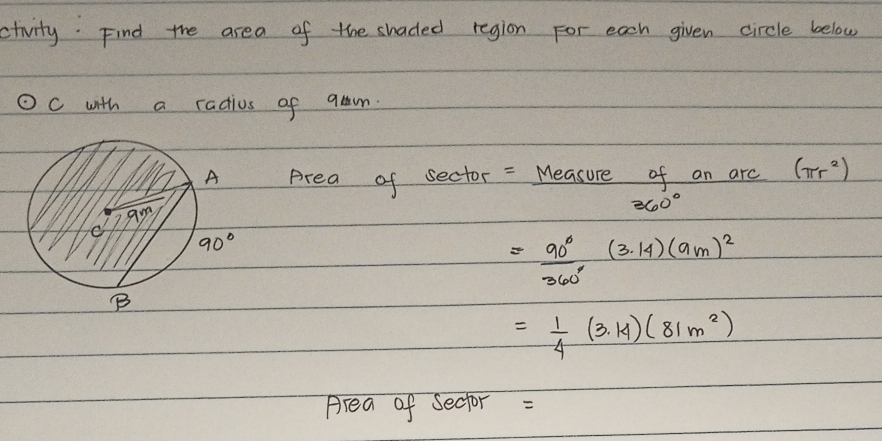 ctivity : Find the area of the shaded region For each given circle below
⊙ C with a radius of 9 m.
A
Area of sector = Measure of an arc (πr²)
360°
9m
C
90°
= 90° (3.14)(9m)²
360°
B
= 1/4 (3.14)(81m²)
Area of Sector =